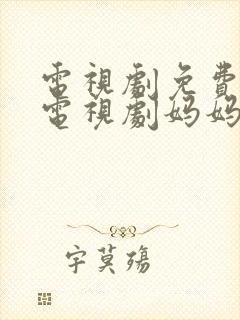 電視劇免費
電視劇妈妈
字莫殇